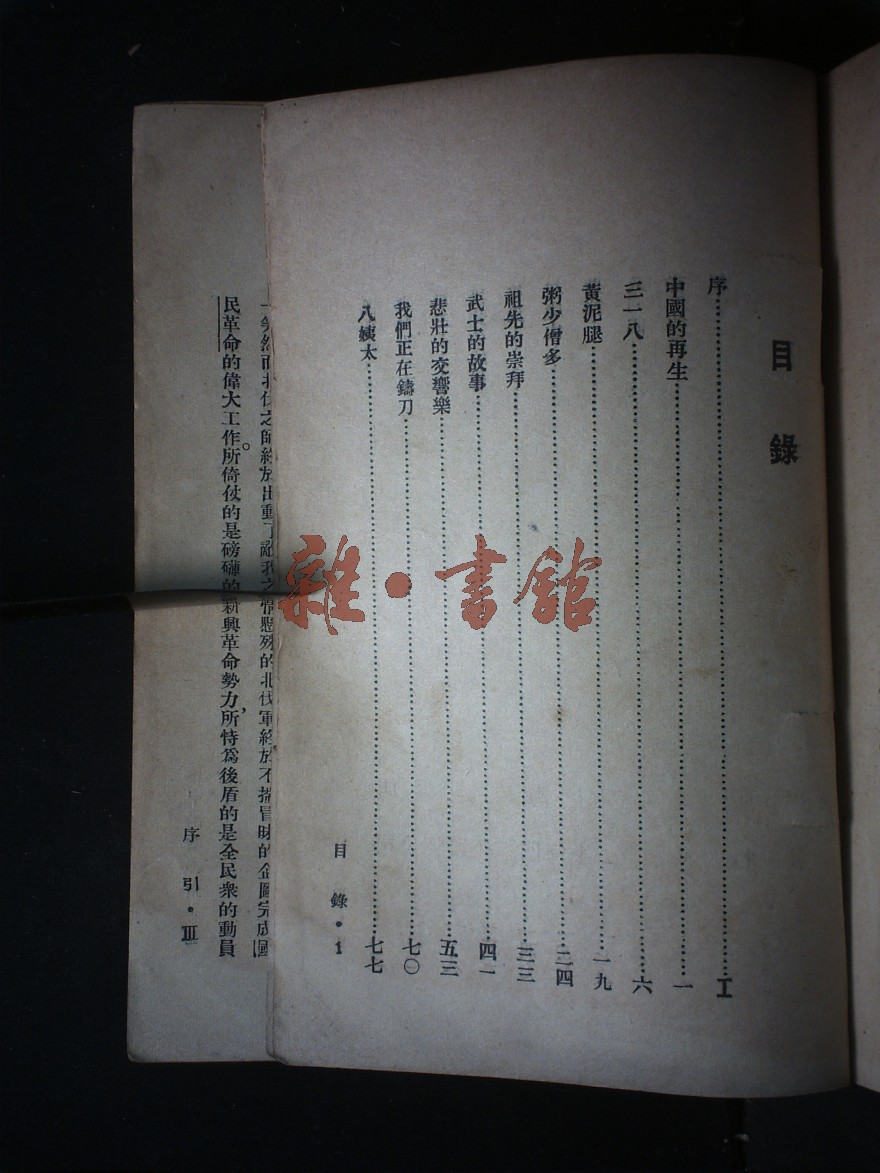 目錄
序……I
中國的再生……一
三一八……六
黃泥腿……一九
粥少僧多……二四
祖先的崇拜……三三
武士的故事……四一
悲壯的交響樂……五三
我們正在鑄刀……七〇
八姨太……七七
目錄·i
雜·書館
之師終於出動了敵我之情懸殊的北伐軍終於不揣冒昧的企圖完成國
民革命的偉大工作。所倚仗的是磅礴的新興革命勢力,所恃爲後盾的是全民衆的動員
序引·III